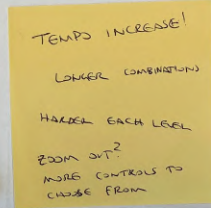 TEMPO INCREASE!
LONGER COMBINATIONS
HARDER EACH LEVEL
ZOOM OUT?
MORE CONTROLS TO
CHOOSE FROM